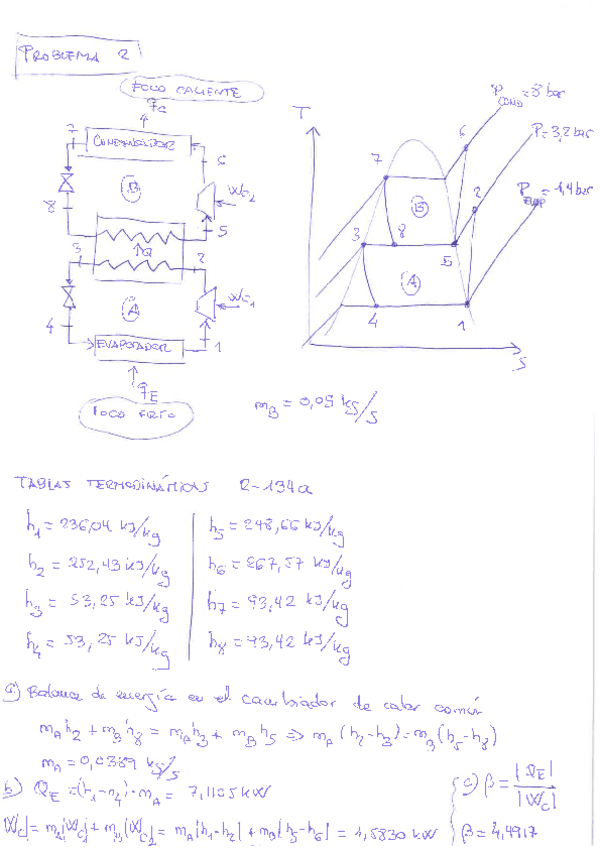 PROBLEMA 2
FOCO CALIENTE
qc
7
CONDENSADOR
6
B
Wc2
8
5
3
Q
2
A
Wc1
4
EVAPORADOR
1
qE
FOCO FRÍO
T
PCOND = 8 bar
6
P = 3,2 bar
7
2
PEVAP = 1,4 bar
B
3
8
5
A
4
1
S
mB = 0,05 kg/s
TABLAS TERMODINÁMICAS R-134a
h1 = 236,04 kJ/kg
h2 = 252,43 kJ/kg
h3 = 53,25 kJ/kg
h4 = 53,25 kJ/kg
h5 = 248,66 kJ/kg
h6 = 267,57 kJ/kg
h7 = 93,42 kJ/kg
h8 = 93,42 kJ/kg
a) Balance de energía en el cambiador de calor común
mA h2 + mB h8 = mA h3 + mB h5 ⇒ mA (h2-h3) = mB (h5-h8)
mA = 0,0389 kg/s
b) QE = (h1-h4)·mA = 7,1105 kW
|Wc| = mA|Wc1| + mB|Wc2| = mA|h1-h2| + mB|h5-h6| = 1,5830 kW
c) β = |QE| / |Wc|
β = 4,4917